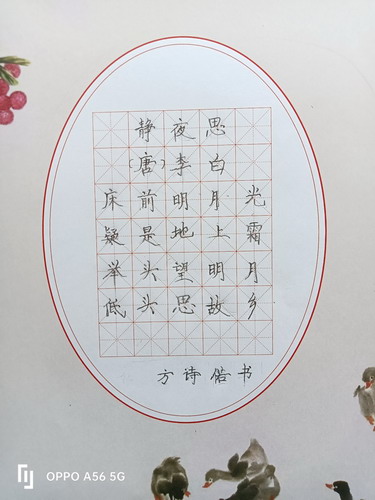 静夜思
（唐）李白
床前明月光
疑是地上霜
举头望明月
低头思故乡
方诗偌书
OPPO A56 5G